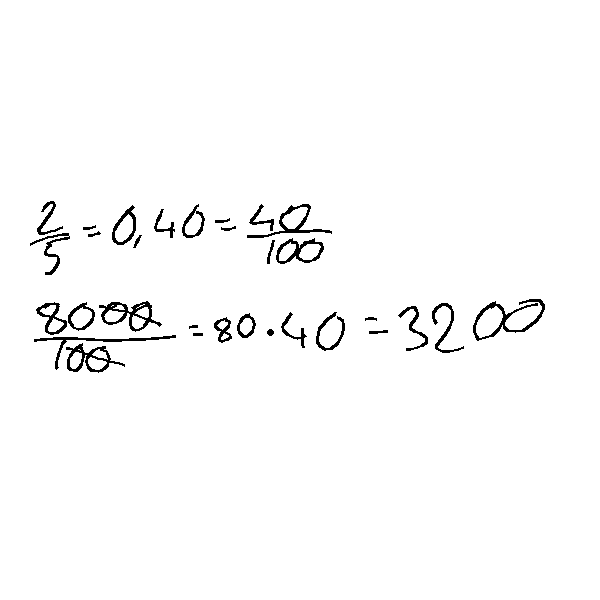 2/5 = 0,40 = 40/100
8000/100 = 80 · 40 = 3200